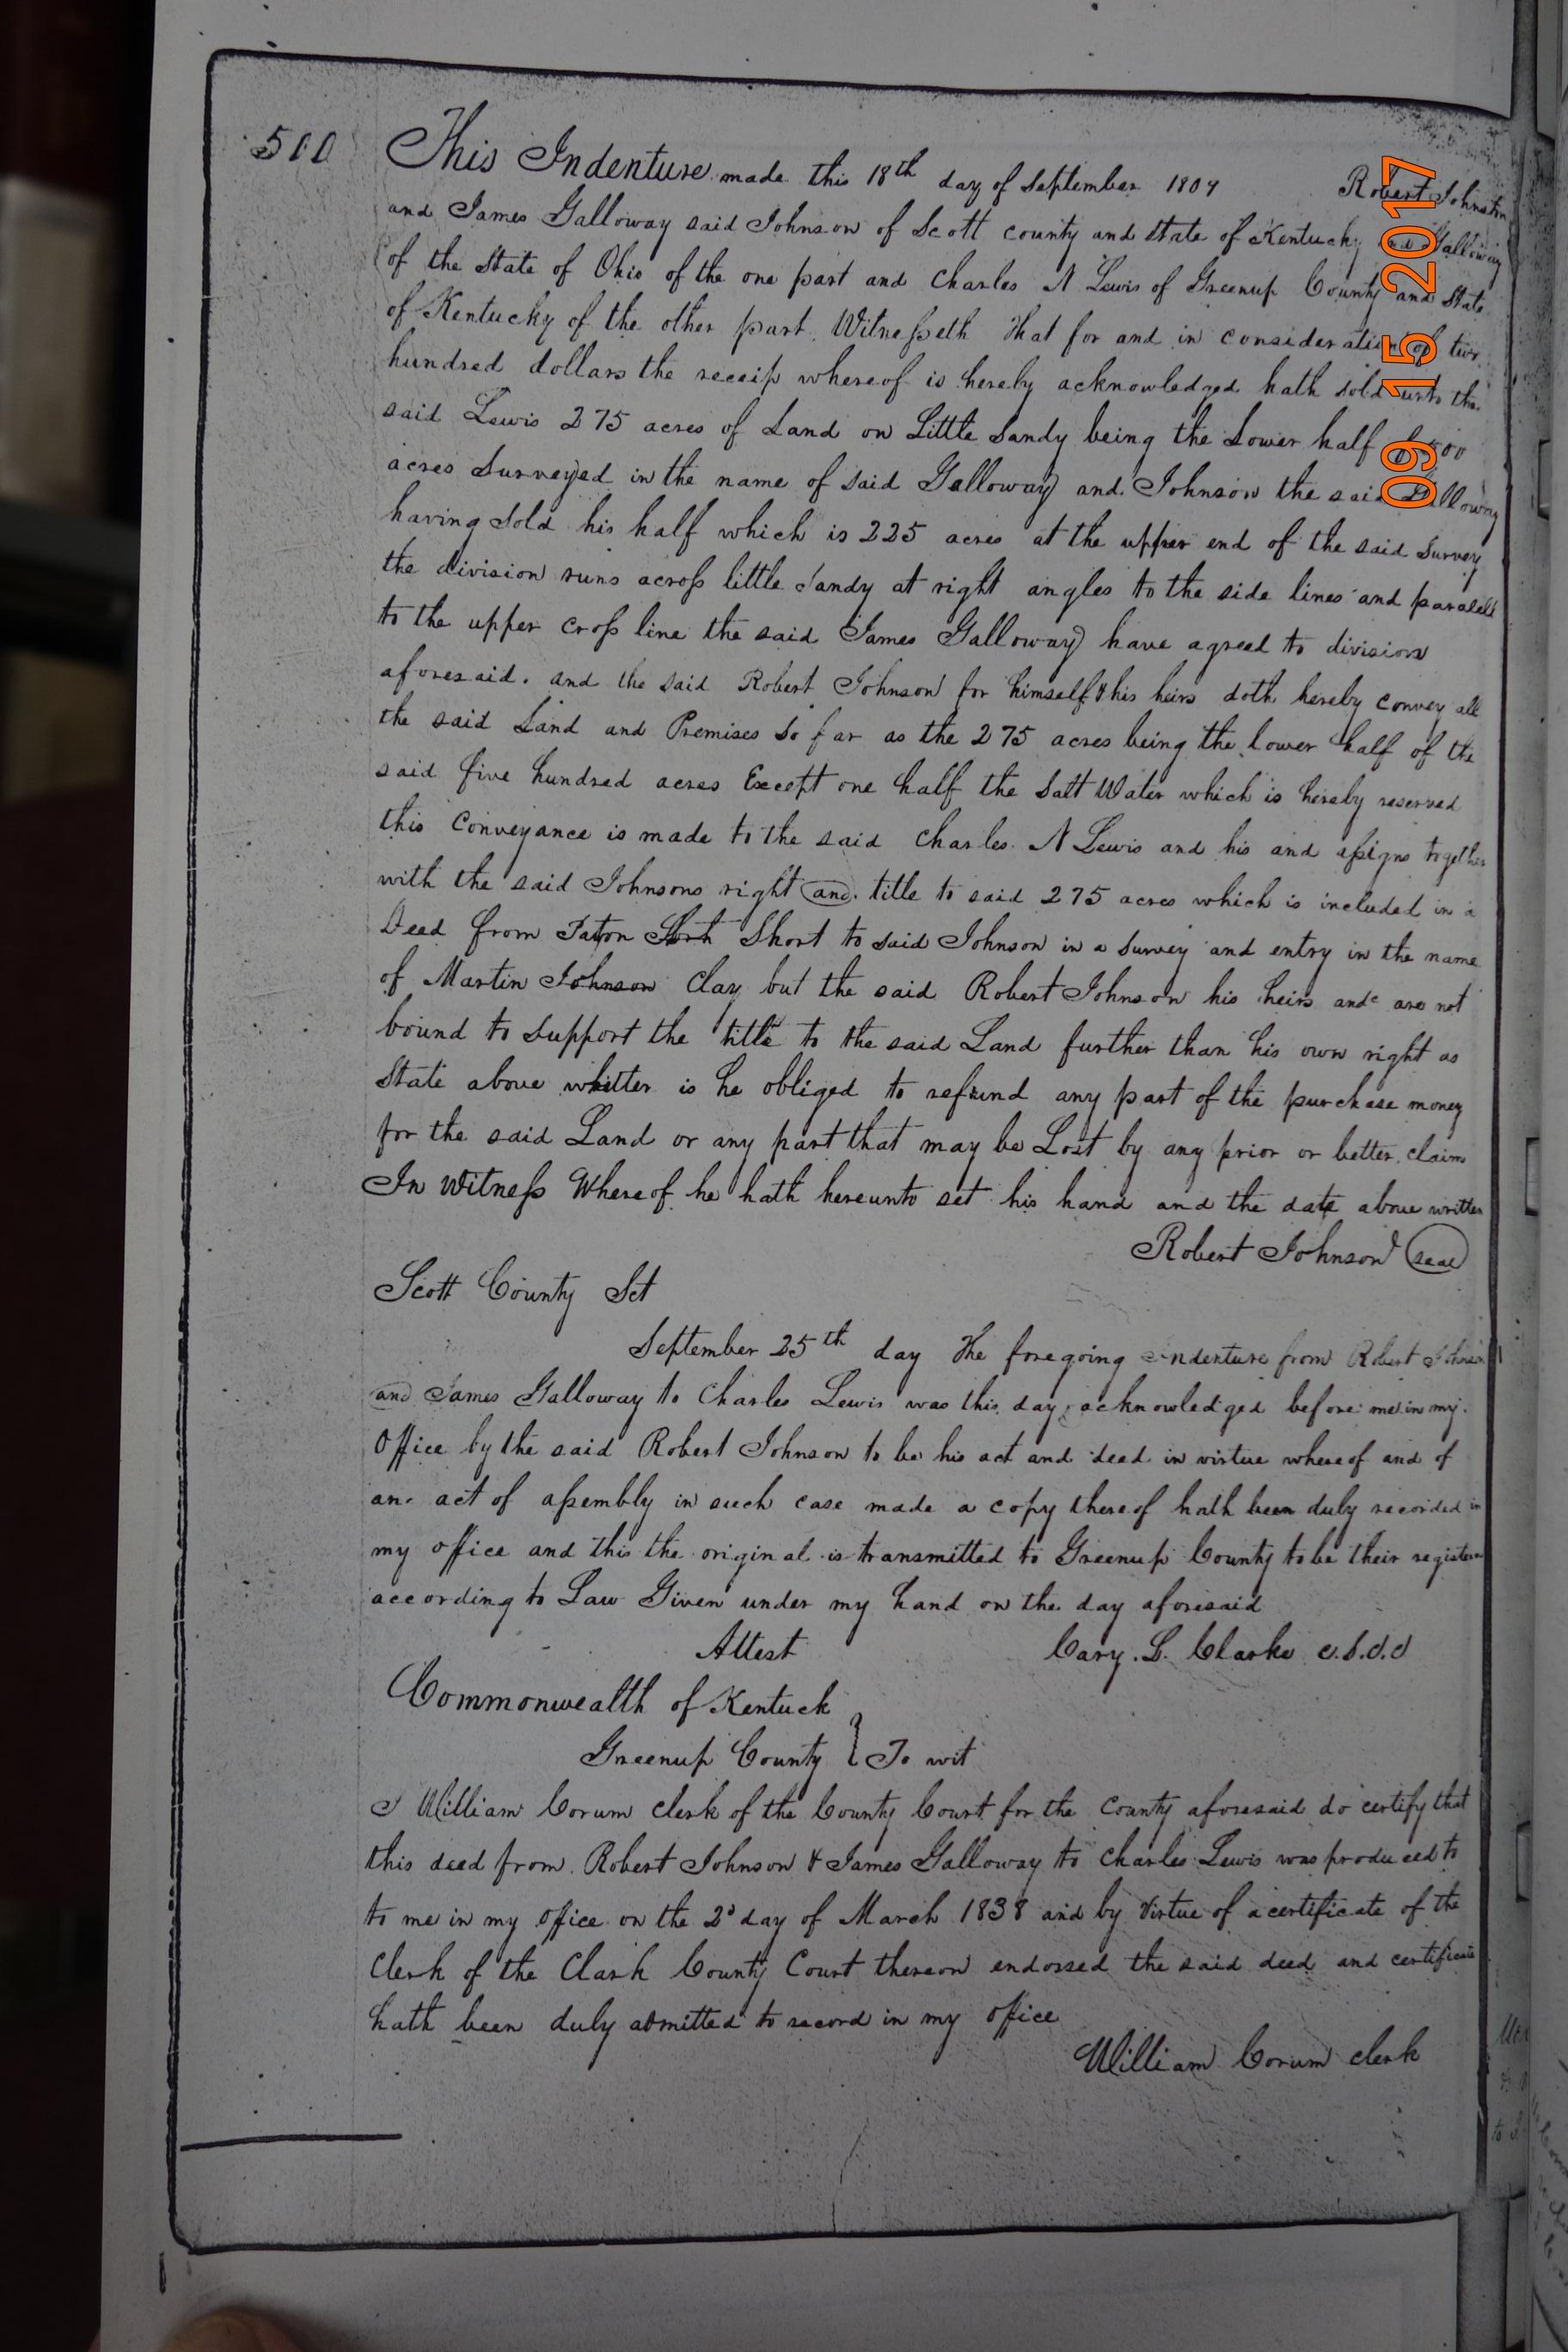 500
This Indenture made this 18th day of September 1804 Robert Johnston
and James Galloway said Johnson of Scott county and state of Kentucky and Galloway
of the State of Ohio of the one part and Charles N Lewis of Greenup County and State
of Kentucky of the other part Witnesseth that for and in consideration of two
hundred dollars the receip whereof is hereby acknowledged hath sold unto the
said Lewis 275 acres of Land on Little Sandy being the Lower half of 500
acres Surveyed in the name of said Galloway and Johnson the said Galloway
having sold his half which is 225 acres at the upper end of the said Survey
the division runs across little Sandy at right angles to the side lines and paralell
to the upper cross line the said James Galloway have agreed to division
aforesaid. and the said Robert Johnson for himself & his heirs doth hereby convey all
the said Land and Premises so far as the 275 acres being the lower half of the
said five hundred acres Except one half the Salt Water which is hereby reserved
this conveyance is made to the said Charles N Lewis and his and assigns together
with the said Johnsons right and title to said 275 acres which is included in a
Deed from Short to said Johnson in a survey and entry in the name
of Martin Johnson Clay but the said Robert Johnson his heirs and are not
bound to support the title to the said Land further than his own right as
State above whitter is he obliged to refund any part of the purchase money
for the said Land or any part that may be Lost by any prior or better claim
In Witness Whereof he hath hereunto set his hand and the date above written
Robert Johnson seal
Scott County Sct
September 25th day The foregoing indenture from Robert Johnson
and James Galloway to Charles Lewis was this day acknowledged before me in my
Office by the said Robert Johnson to be his act and deed in virtue whereof and of
an act of assembly in such case made a copy thereof hath been duly recorded in
my office and this the original is transmitted to Greenup County to be their register
according to Law Given under my hand on the day aforesaid
Attest Cary. L. Clarke
Commonwealth of Kentuck
Greenup County } To wit
I William Corum clerk of the County Court for the County aforesaid do certify that
this deed from Robert Johnson & James Galloway to Charles Lewis was produced to
to me in my office on the 2d day of March 1838 and by virtue of a certificate of the
Clerk of the Clark County Court thereon endorsed the said deed and certificate
hath been duly admitted to record in my office
William Corum clerk
09 15 2017